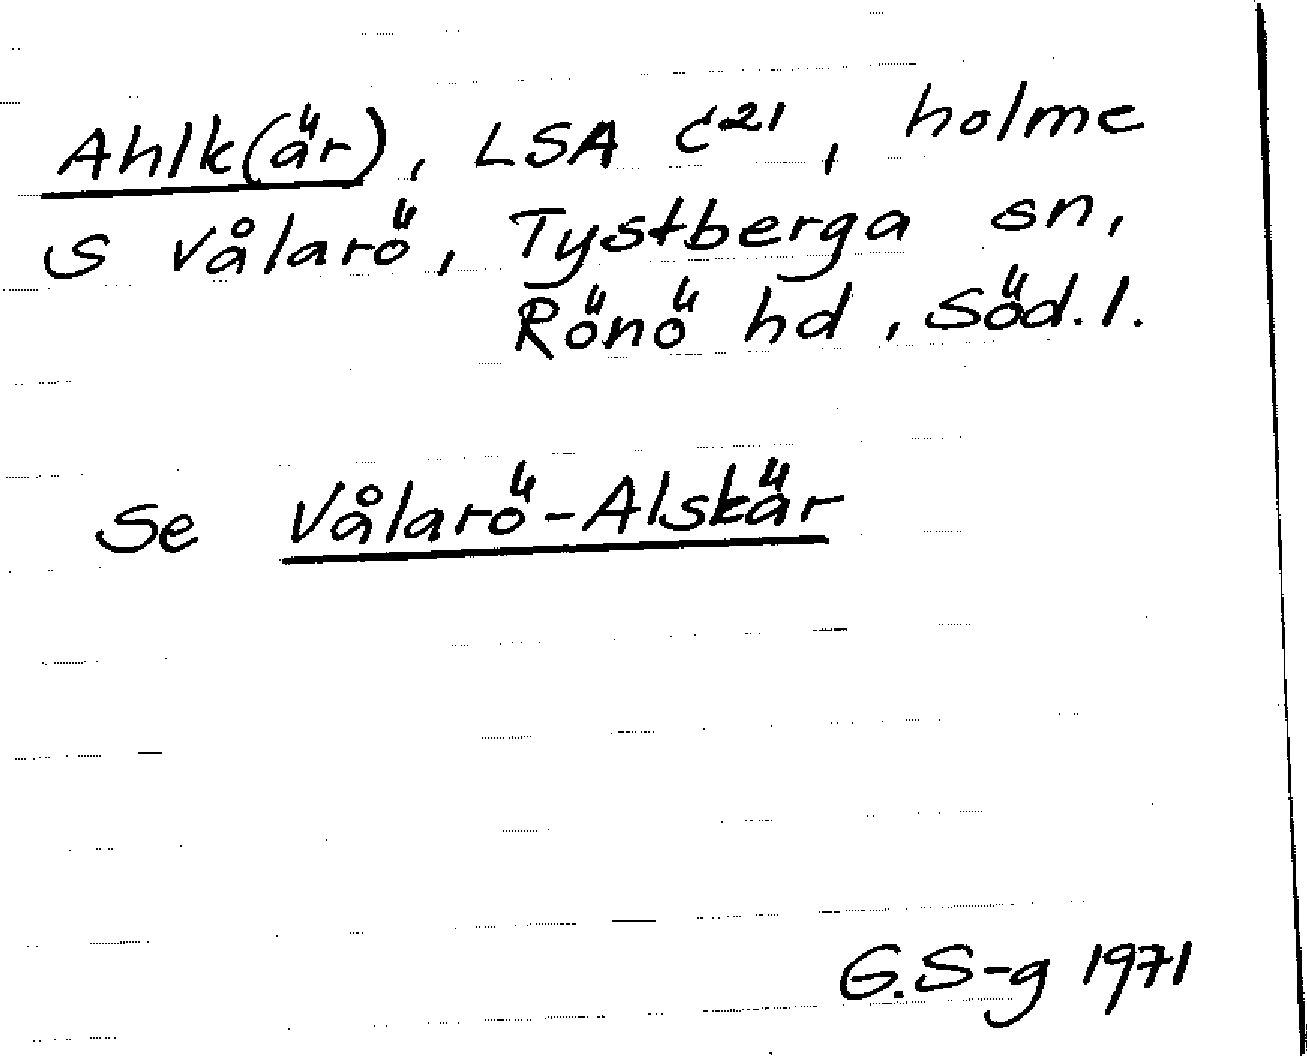 Ahlk(är), LSA C²¹, holme
S Vålarö, Tystberga sn,
Rönö hd, Söd.l.
Se Vålarö-Alskär
G.S-g 1971